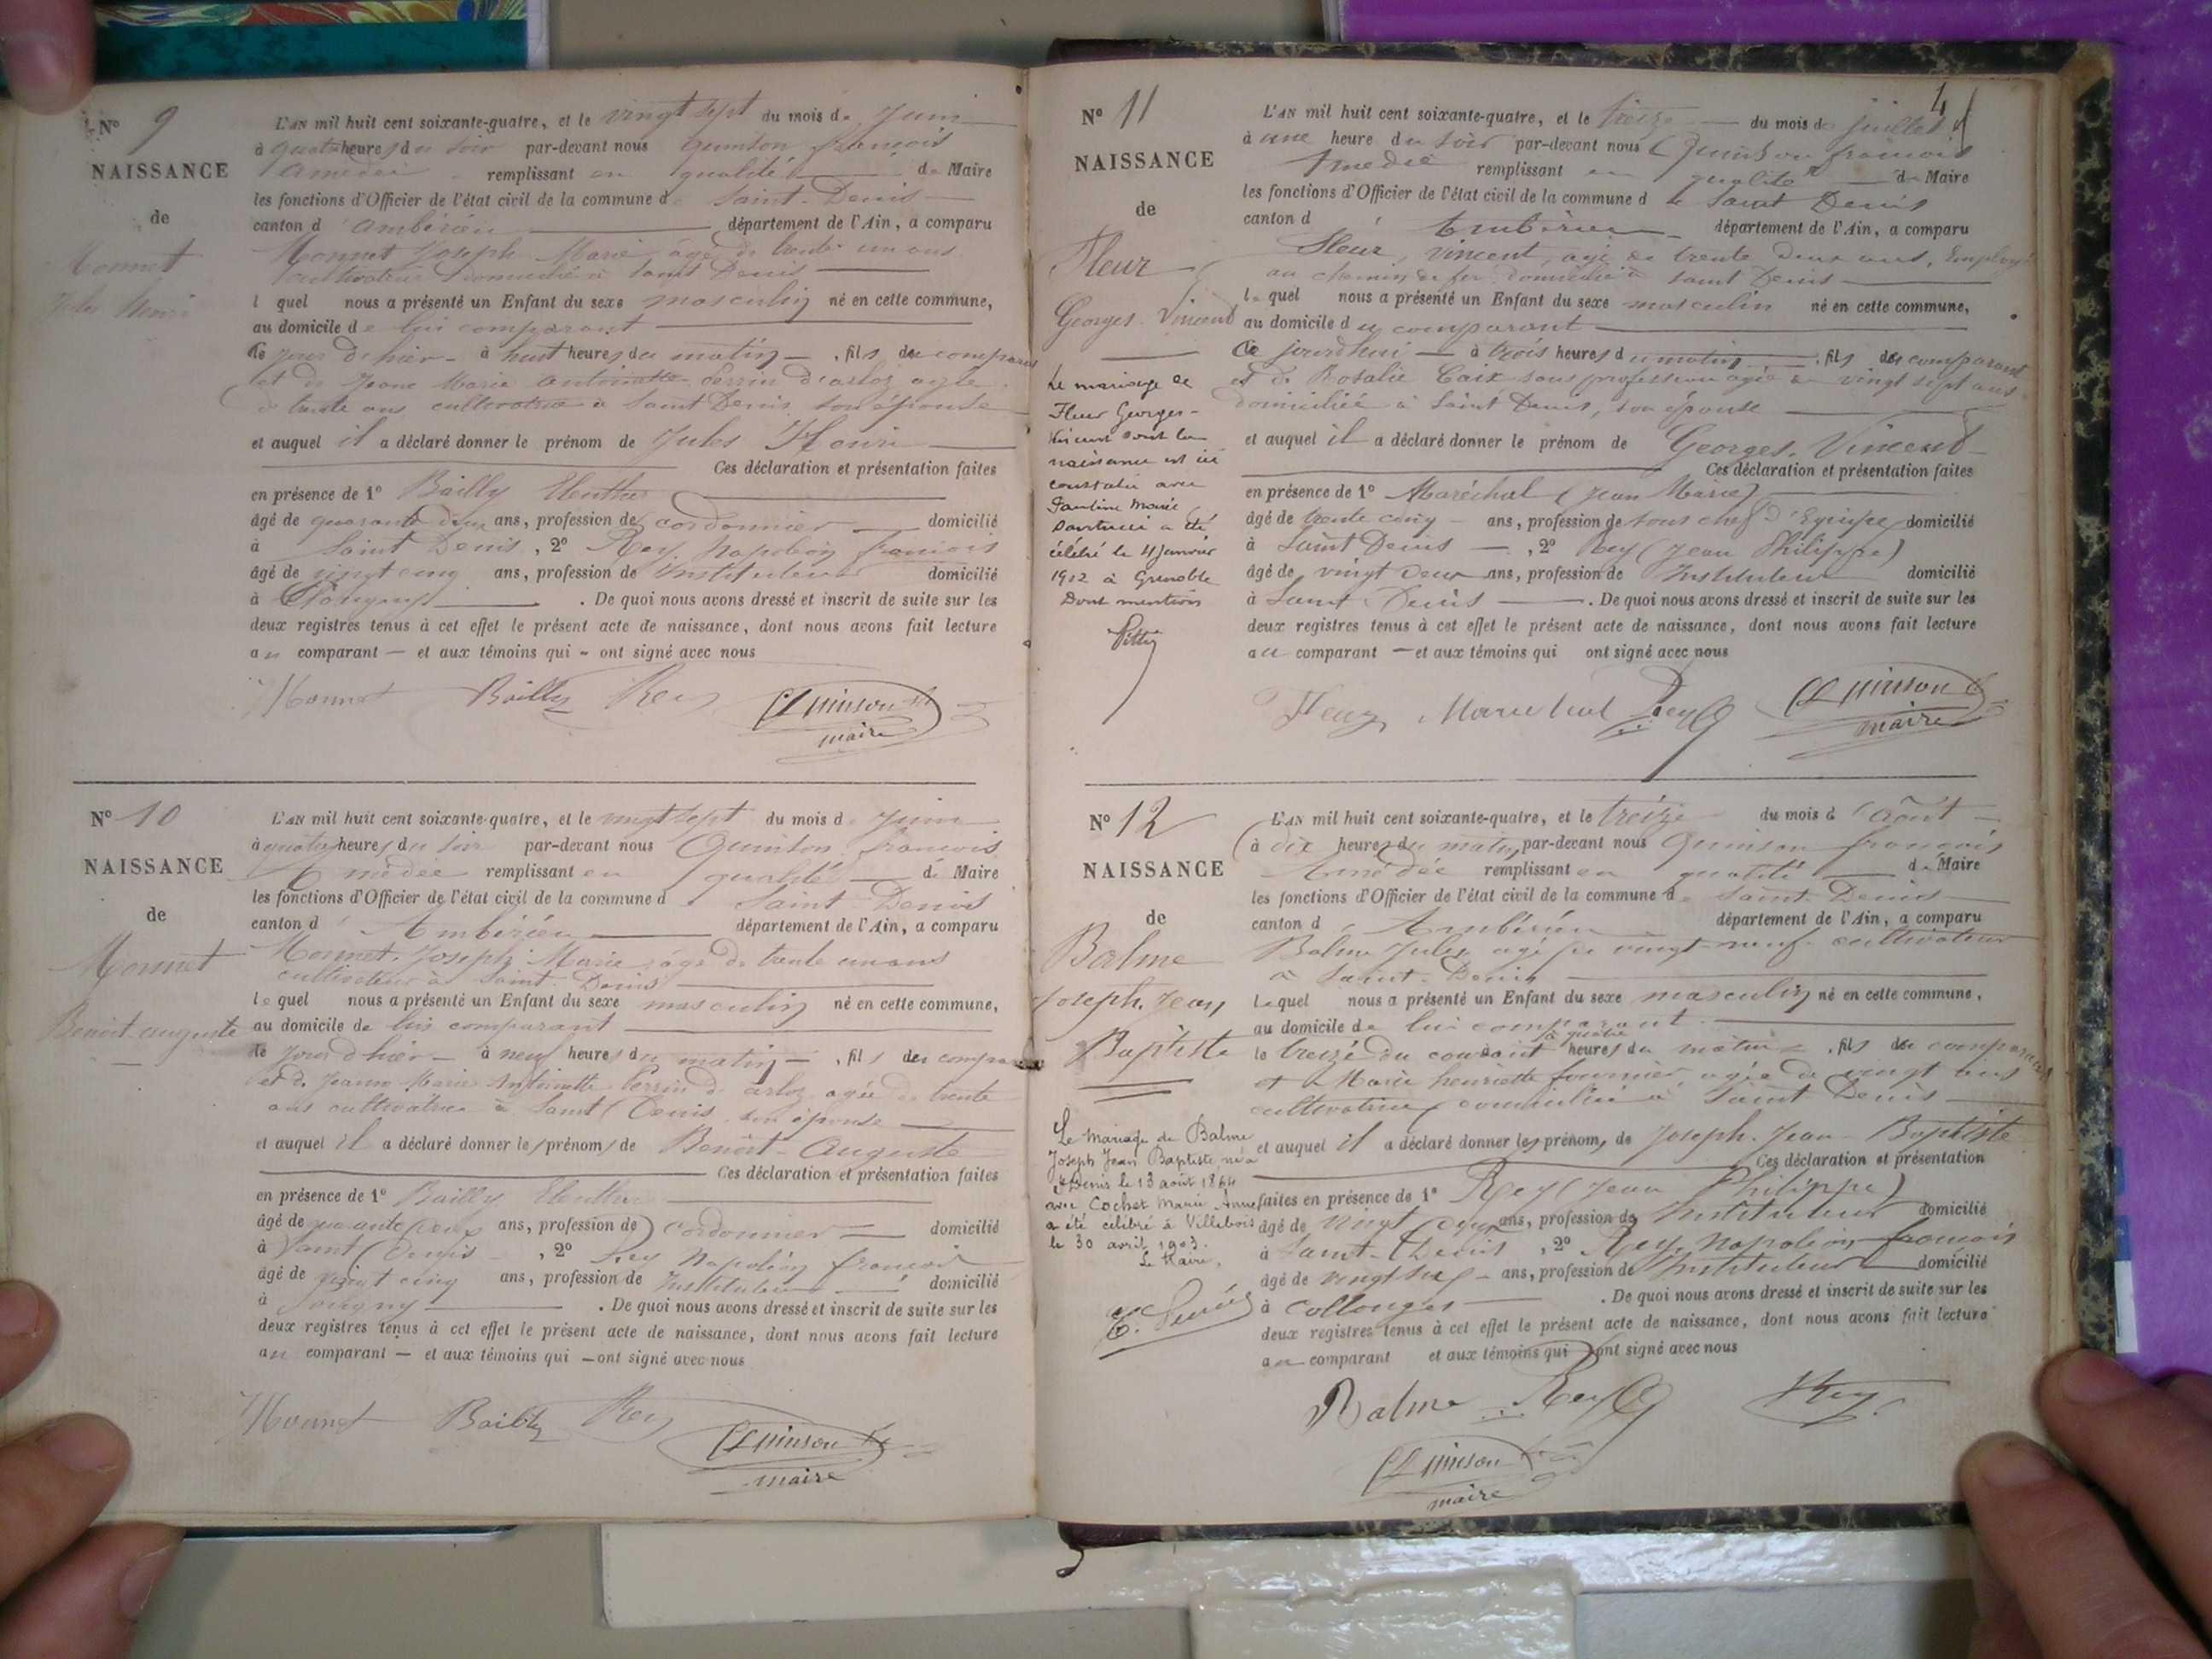 N° 9
NAISSANCE
de
Monnet
Jules Henri
L'AN mil huit cent soixante-quatre, et le vingt sept du mois de Juin
à quatre heures du soir par-devant nous Quinson françois
Amédée remplissant en qualité de Maire
les fonctions d'Officier de l'état civil de la commune de Saint-Denis
canton d'Ambérieu département de l'Ain, a comparu
Monnet Joseph Marie, âgé de trente un ans
cultivateur domicilié à Saint Denis
lequel nous a présenté un Enfant du sexe masculin né en cette commune,
au domicile de lui comparant
le jour d'hier à huit heures du matin, fils du comparant
et de Jeanne Marie Antoinette Perrin d'arloz agée
de trente ans cultivatrice à Saint Denis son épouse
et auquel il a déclaré donner le prénom de Jules Henri
Ces déclaration et présentation faites
en présence de 1° Bailly
âgé de quarante deux ans, profession de cordonnier domicilié
à Saint Denis, 2° Rey Napoléon françois
âgé de vingt cinq ans, profession de Instituteur domicilié
à . De quoi nous avons dressé et inscrit de suite sur les
deux registres tenus à cet effet le présent acte de naissance, dont nous avons fait lecture
au comparant et aux témoins qui ont signé avec nous
Monnet Bailly Rey Quinson
maire
N° 10
NAISSANCE
de
Monnet
Benoit auguste
L'AN mil huit cent soixante-quatre, et le vingt sept du mois de Juin
à quatre heures du soir par-devant nous Quinson françois
Amédée remplissant en qualité de Maire
les fonctions d'Officier de l'état civil de la commune de Saint Denis
canton d'Ambérieu département de l'Ain, a comparu
Monnet Joseph Marie, âgé de trente un ans
cultivateur à Saint Denis
lequel nous a présenté un Enfant du sexe masculin né en cette commune,
au domicile de lui comparant
le jour d'hier à neuf heures du matin, fils du
et de Jeanne Marie Antoinette Perrin d'arloz agée de trente
ans cultivatrice à Saint Denis son épouse
et auquel il a déclaré donner le prénom de Benoit-Auguste
Ces déclaration et présentation faites
en présence de 1° Bailly
âgé de quarante deux ans, profession de cordonnier domicilié
à Saint Denis, 2° Rey Napoléon françois
âgé de vingt cinq ans, profession de Instituteur domicilié
à . De quoi nous avons dressé et inscrit de suite sur les
deux registres tenus à cet effet le présent acte de naissance, dont nous avons fait lecture
au comparant et aux témoins qui ont signé avec nous
Monnet Bailly Rey
Quinson
maire
4
N° 11
NAISSANCE
de
Fleur
Georges Vincent
Le mariage de
Fleur Georges-
Vincent dont la
naissance est ici
constatée avec
Marie
a été
célébré le 4 Janvier
1912 à Grenoble
Dont mention
L'AN mil huit cent soixante-quatre, et le treize du mois de juillet
à une heure du soir par-devant nous Quinson françois
Amédée remplissant en qualité de Maire
les fonctions d'Officier de l'état civil de la commune de Saint Denis
canton d'Ambérieu département de l'Ain, a comparu
Fleur, Vincent, agé de trente deux ans, Employé
au chemin de fer domicilié à Saint Denis
lequel nous a présenté un Enfant du sexe masculin né en cette commune,
au domicile du comparant
ce jourd'hui à trois heures du matin, fils du comparant
et de Rosalie Caix sans profession agée de vingt sept ans
domiciliée à Saint Denis, son épouse
et auquel il a déclaré donner le prénom de Georges, Vincent
Ces déclaration et présentation faites
en présence de 1° Maréchal (Jean Marie)
âgé de trente cinq ans, profession de sous chef d'Equipe domicilié
à Saint Denis, 2° Rey (Jean Philippe)
âgé de vingt deux ans, profession de Instituteur domicilié
à Saint Denis. De quoi nous avons dressé et inscrit de suite sur les
deux registres tenus à cet effet le présent acte de naissance, dont nous avons fait lecture
au comparant et aux témoins qui ont signé avec nous
Fleur Maréchal Rey Quinson
maire
N° 12
NAISSANCE
de
Balme
Joseph, Jean
Baptiste
Le Mariage de Balme
Joseph Jean Baptiste né à
St Denis le 13 août 1864
avec Cochet Marie Anne
a été célébré à Villebois
le 30 avril 1903.
Le Maire,
L'AN mil huit cent soixante-quatre, et le treize du mois d'Août
à dix heures du matin par-devant nous Quinson françois
Amédée remplissant en qualité de Maire
les fonctions d'Officier de l'état civil de la commune de Saint-Denis
canton d'Ambérieu département de l'Ain, a comparu
Balme Jules agé de vingt-neuf cultivateur
à Saint-Denis
Lequel nous a présenté un Enfant du sexe masculin né en cette commune,
au domicile de lui comparant
le treize du courant à quatre heures du matin, fils du comparant
et Marie henriette fournier, agée de vingt ans
cultivatrice domiciliée à Saint Denis
et auquel il a déclaré donner les prénoms de Joseph, Jean Baptiste
Ces déclaration et présentation
faites en présence de 1° Rey (Jean Philippe)
âgé de vingt deux ans, profession de Instituteur domicilié
à Saint-Denis, 2° Rey, Napoléon françois
âgé de vingt six ans, profession de Instituteur domicilié
à Collonges. De quoi nous avons dressé et inscrit de suite sur les
deux registres tenus à cet effet le présent acte de naissance, dont nous avons fait lecture
au comparant et aux témoins qui ont signé avec nous
Balme Rey Rey
Quinson
maire